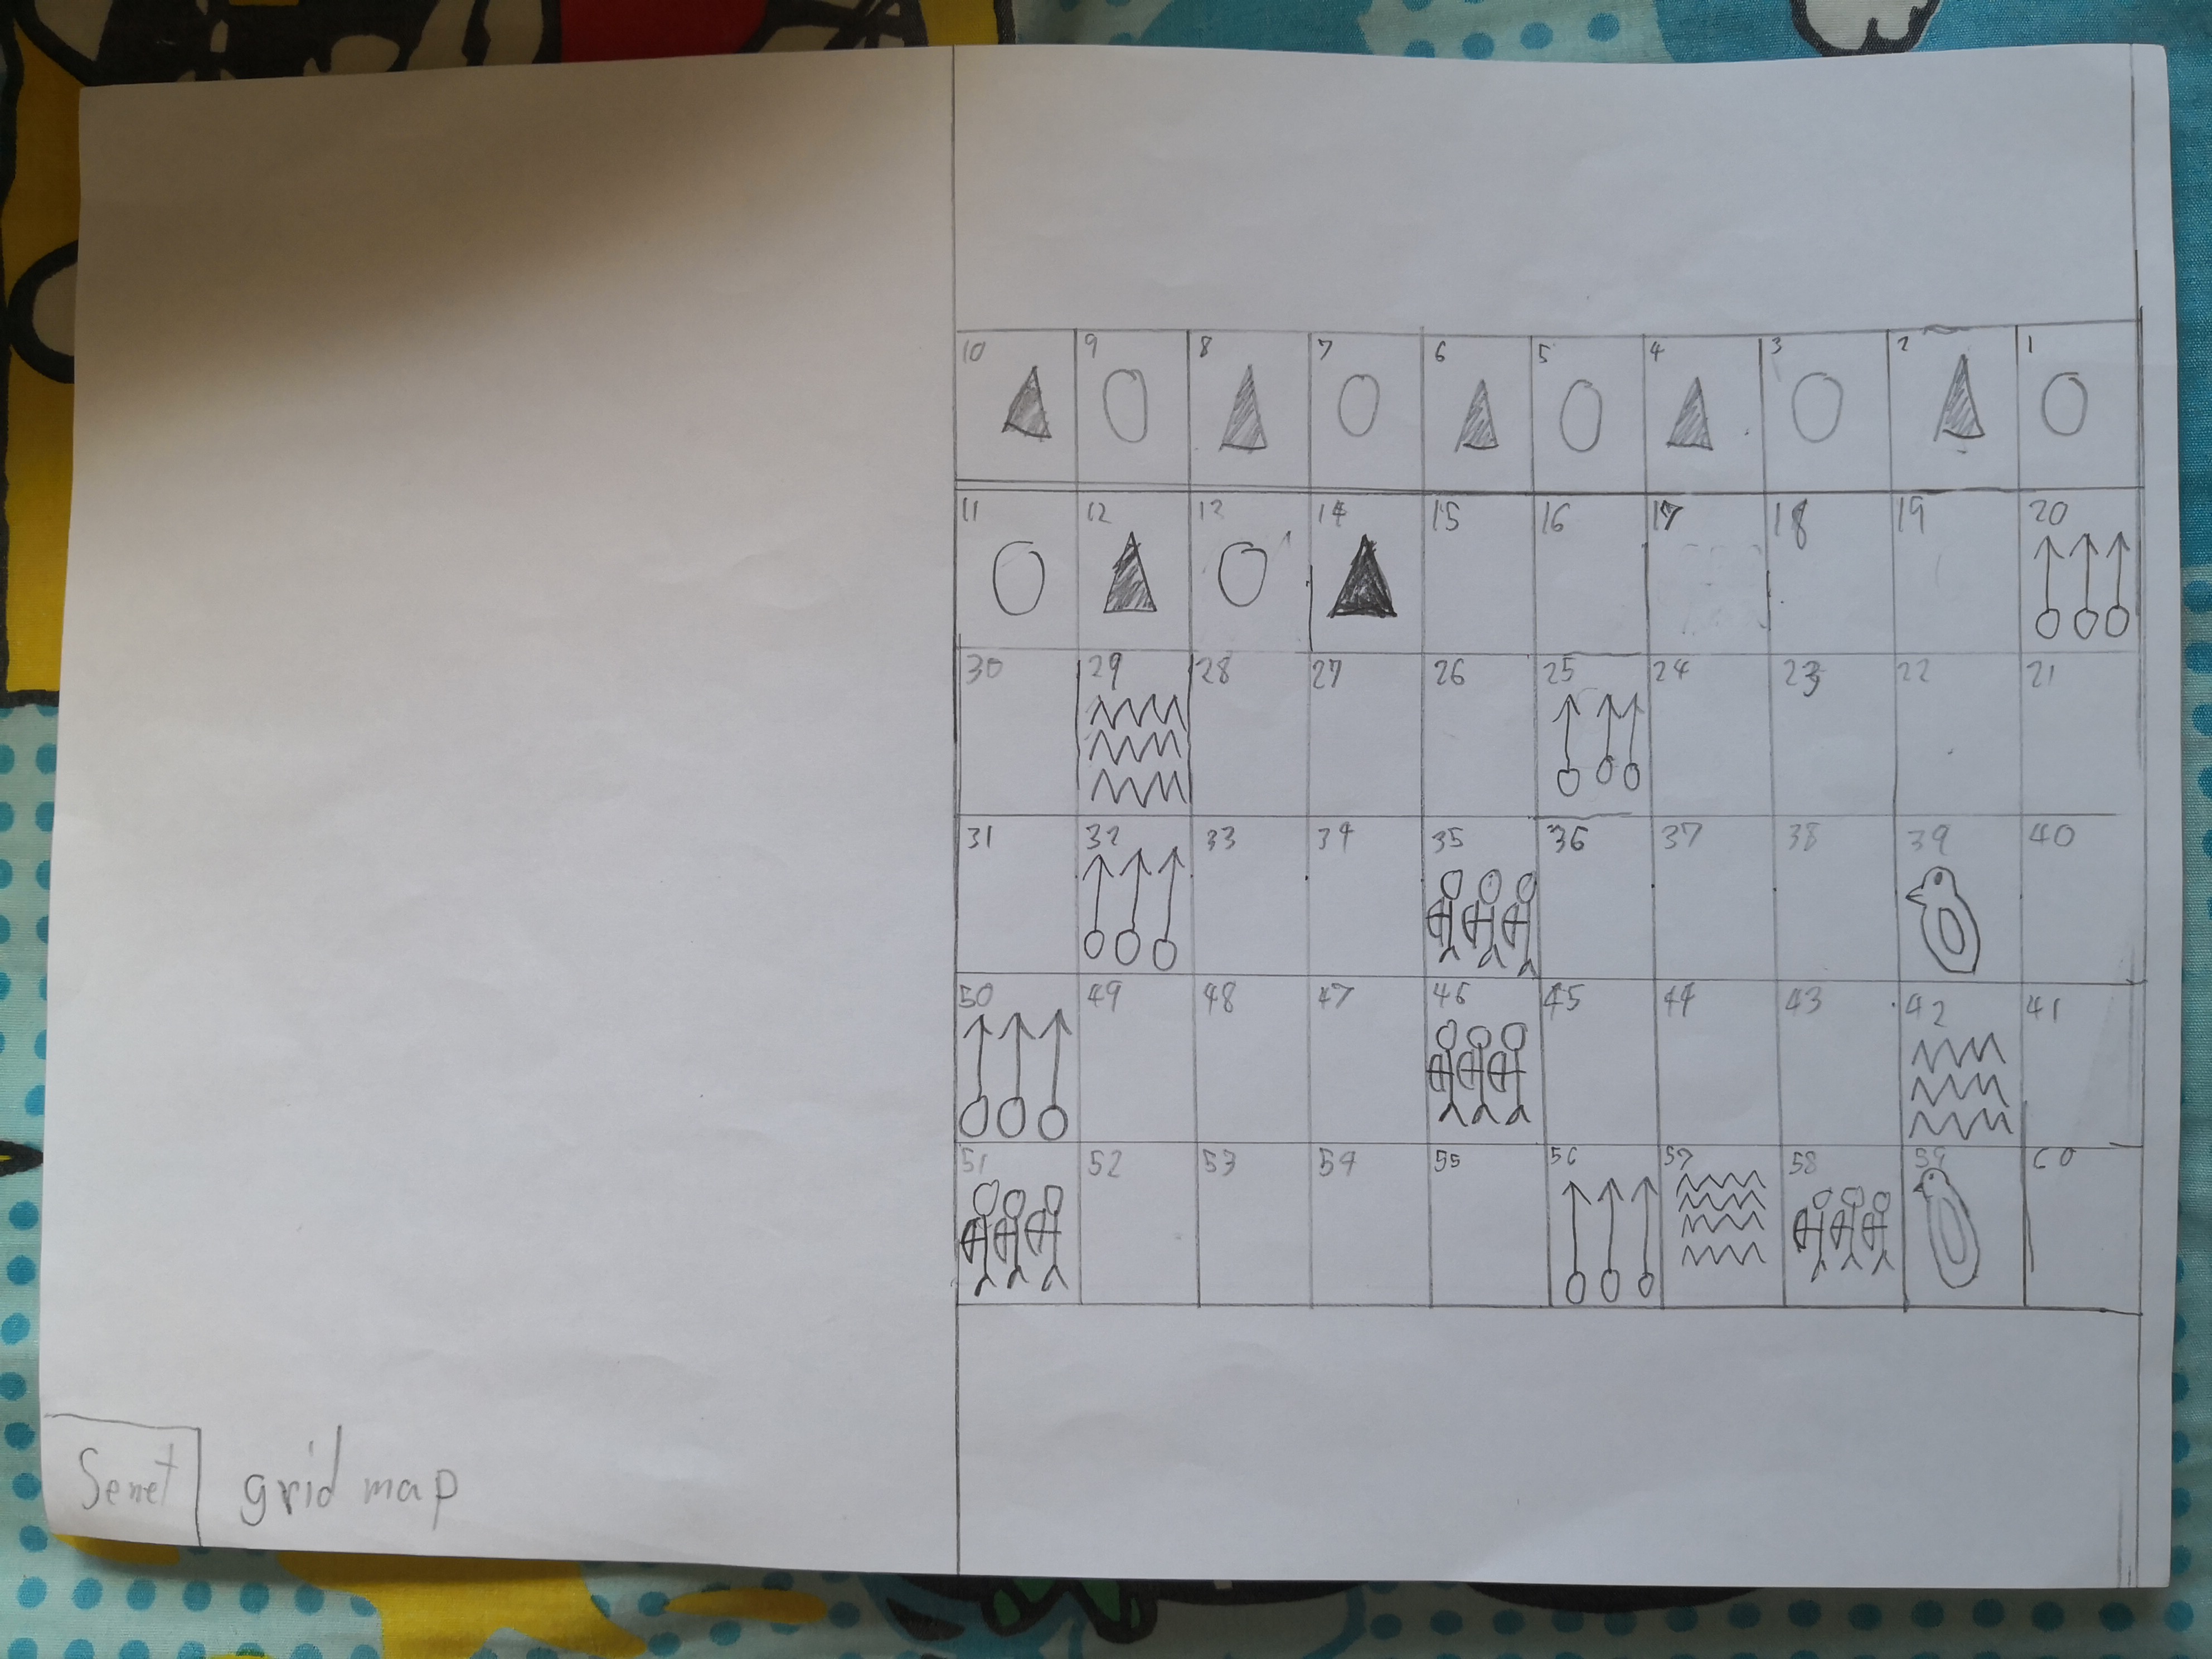 10 9 8 7 6 5 4 3 2 1
11 12 13 14 15 16 17 18 19 20
30 29 28 27 26 25 24 23 22 21
31 32 33 34 35 36 37 38 39 40
50 49 48 47 46 45 44 43 42 41
51 52 53 54 55 56 57 58 59 60
Senet grid map